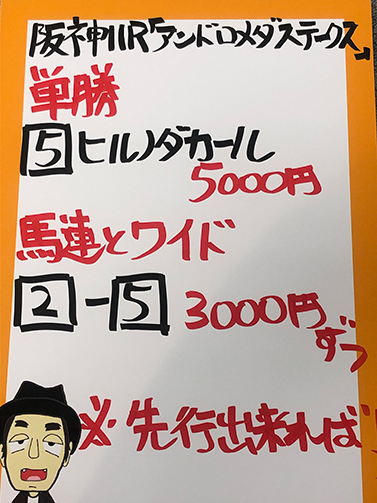 阪神11R「アンドロメダステークス」
単勝
5 ヒルノダカール
5000円
馬連とワイド
2-5 3000円
ずつ
※先行出来れば